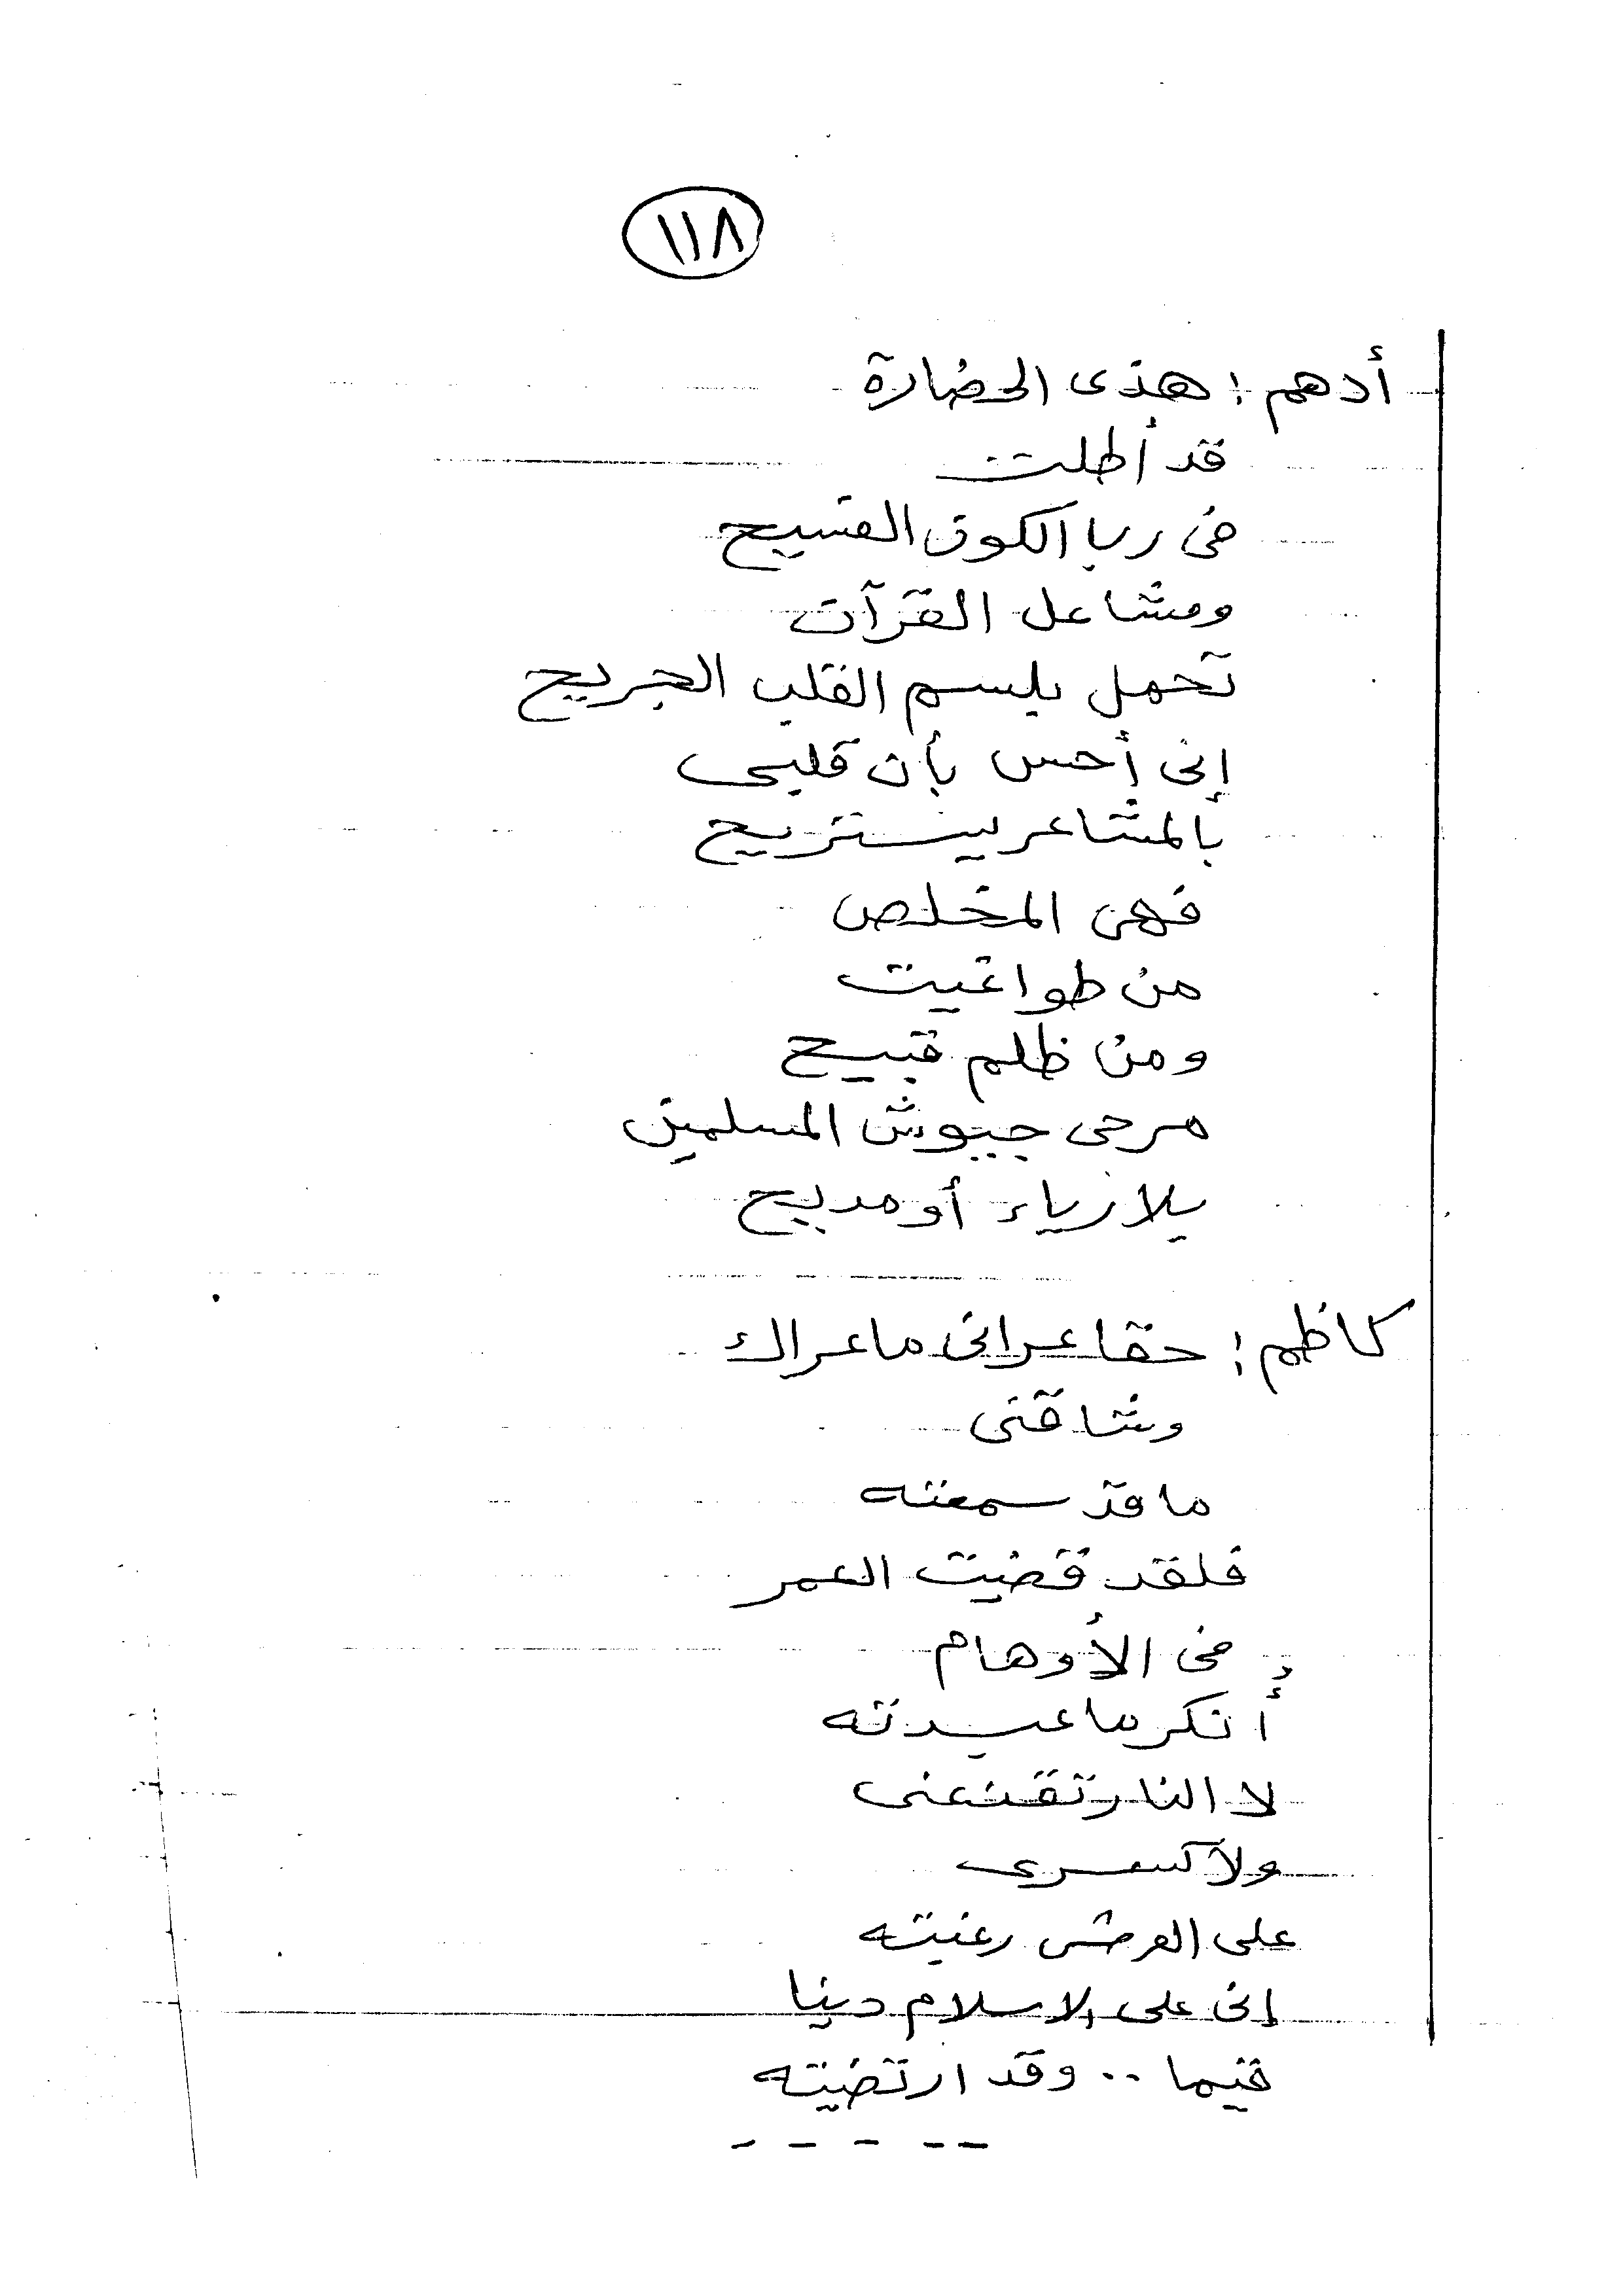 ١١٨
أدهم : هذى الحضارة
قد أطلت
فى ربا الكون الفسيح
ومشاعل القرآن
تحمل بلسم القلب الجريح
إنى أحس بأن قلبى
بالمشاعر يستريح
فهى المخلص
من طواغيت
ومن ظلم قبيح
مرحى جيوش المسلمين
بلا رياء أو مديح
كاظم : حقا عرانى ما عراك
وشاقنى
ما قد سمعته
فلقد قضيت العمر
فى الأوهام
أنكر ما عبدته
لا النار تقنعنى
ولا كسرى
على العرش رغبته
إنى على الاسلام دينا
قيما .. وقد ارتضيته